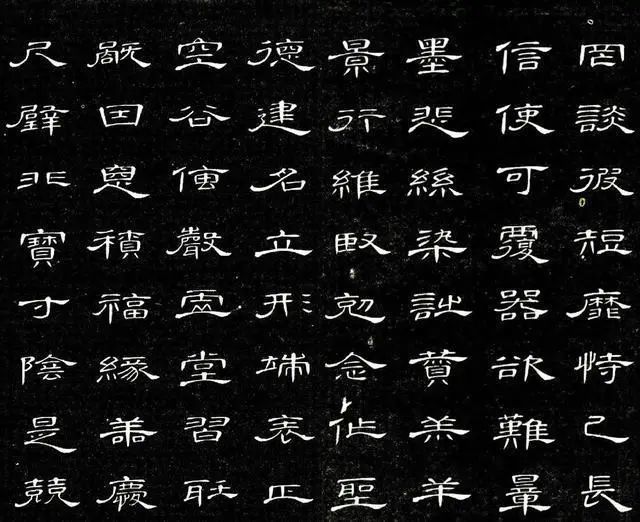 罔談彼短靡恃己長
信使可覆器欲難量
墨悲絲染詩賛羔羊
景行維臤剋念作聖
德建名立形端表正
空谷傳聲虛堂習聽
旤因惡積福緣善慶
尺璧非寶寸陰是競